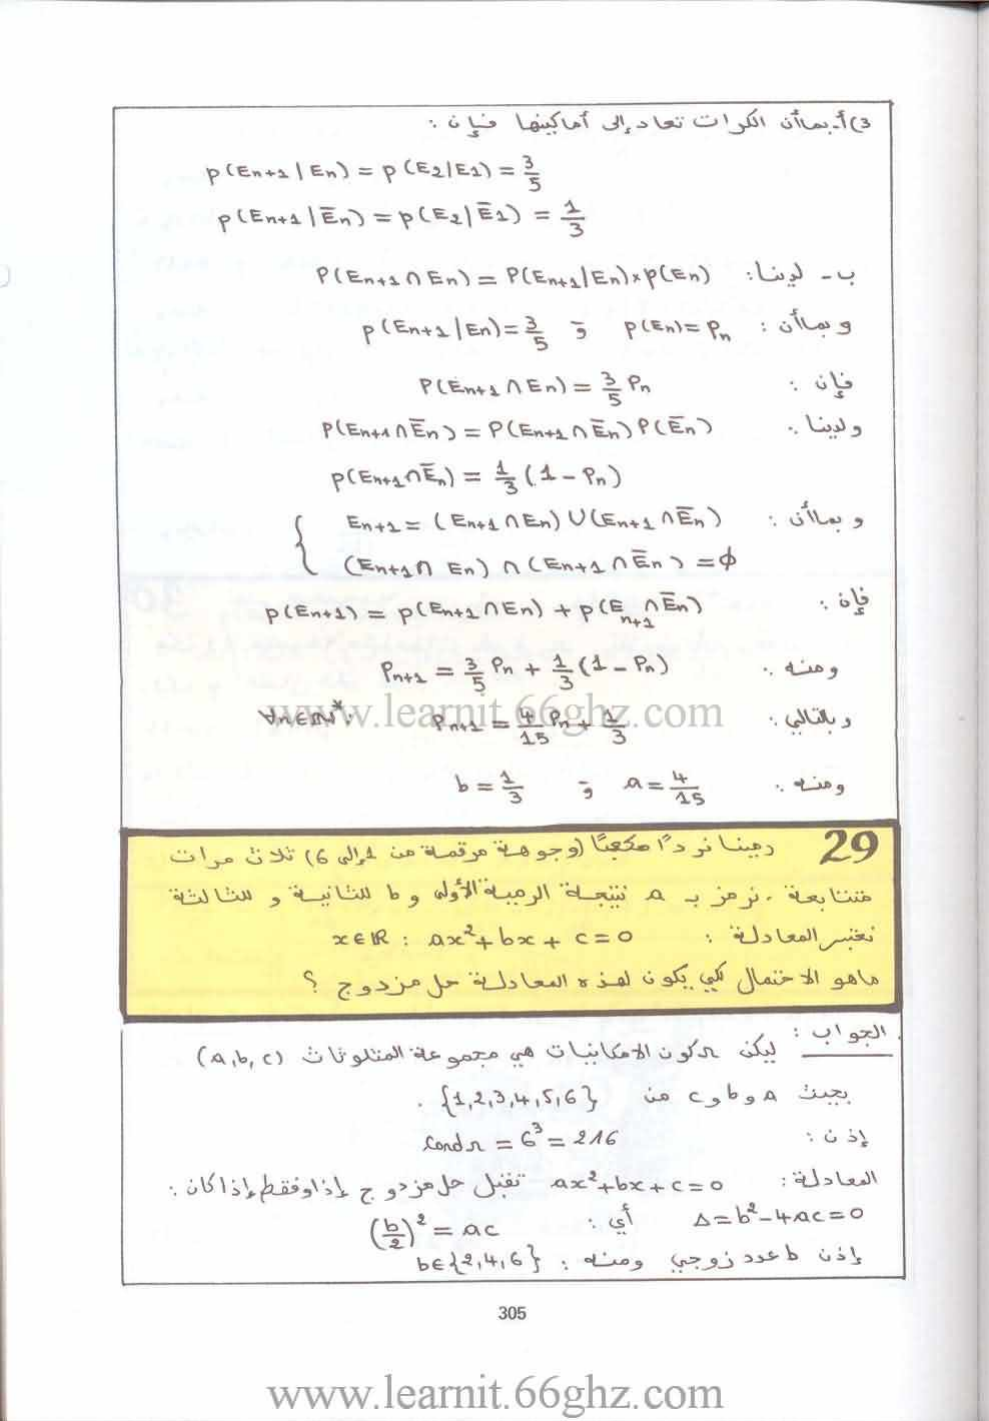 3) أ. بما أن الكرات تعاد إلى أماكنها فإن :
p(En+1 | En) = p(E2|E1) = 3/5
p(En+1 | Ēn) = p(E2| Ē1) = 1/3
ب - لدينا : P(En+1 ∩ En) = P(En+1 | En) × p(En)
و بما أن : p(En) = Pn و p(En+1 | En) = 3/5
فإن : P(En+1 ∩ En) = 3/5 Pn
ولدينا : P(En+1 ∩ Ēn) = P(En+1 ∩ Ēn) P(Ēn)
p(En+1 ∩ Ēn) = 1/3 (1 - Pn)
و بما أن : { En+1 = (En+1 ∩ En) ∪ (En+1 ∩ Ēn)
(En+1 ∩ En) ∩ (En+1 ∩ Ēn) = ϕ
فإن : p(En+1) = p(En+1 ∩ En) + p(En+1 ∩ Ēn)
ومنه : Pn+1 = 3/5 Pn + 1/3 (1 - Pn)
و بالتالي : Pn+1 = 4/15 Pn + 1/3 ; ∀n∈ℕ*
www.learnit.66ghz.com
ومنه : a = 4/15 و b = 1/3
29 رمينا نردًا مكعبًا (وجوهه مرقمة من 1 إلى 6) ثلاث مرات
متتابعة . نرمز بـ a نتيجة الرمية الأولى و b للثانية و للثالثة
نعتبر المعادلة : x∈ℝ : ax²+bx+c=0
ماهو الاحتمال لكي يكون لهذه المعادلة حل مزدوج ؟
الجواب : ليكن Ω كون الإمكانيات هي مجموعة المثلوثات (a,b,c)
بحيث a و b و c من {1,2,3,4,5,6} .
إذن : cardΩ = 6³ = 216
المعادلة : ax²+bx+c=0 تقبل حل مزدوج إذا وفقط إذا كان :
Δ=b²-4ac=0 أي : (b/2)² = ac
إذن b عدد زوجي ومنه : b∈{2,4,6}
305
www.learnit.66ghz.com